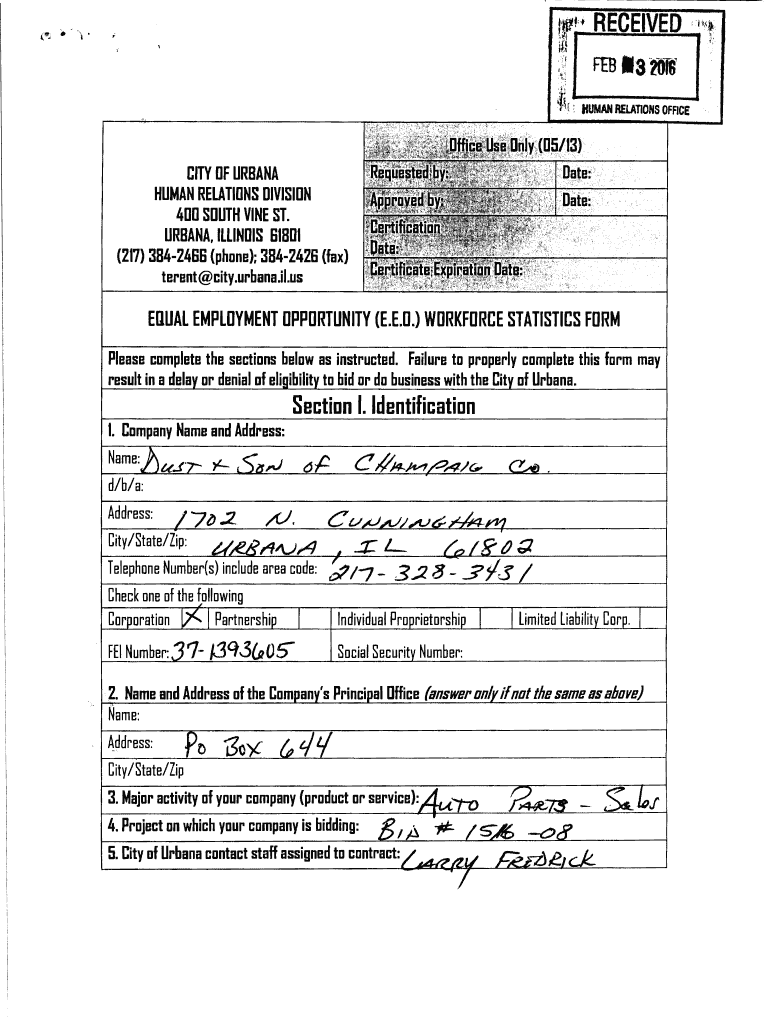 RECEIVED
FEB 3 2016
HUMAN RELATIONS OFFICE
CITY OF URBANA
HUMAN RELATIONS DIVISION
400 SOUTH VINE ST.
URBANA, ILLINOIS 61801
(217) 384-2466 (phone); 384-2426 (fax)
terent@city.urbana.il.us
Office Use Only (05/13)
Requested by: Date:
Approved by: Date:
Certification
Date:
Certificate Expiration Date:
EQUAL EMPLOYMENT OPPORTUNITY (E.E.O.) WORKFORCE STATISTICS FORM
Please complete the sections below as instructed. Failure to properly complete this form may
result in a delay or denial of eligibility to bid or do business with the City of Urbana.
Section I. Identification
1. Company Name and Address:
Name: DUST + SON OF CHAMPAIG CO.
d/b/a:
Address: 1702 N. CUNNINGHAM
City/State/Zip: URBANA, IL 61802
Telephone Number(s) include area code: 217-328-3431
Check one of the following
Corporation X Partnership Individual Proprietorship Limited Liability Corp.
FEI Number: 37-1393605 Social Security Number:
2. Name and Address of the Company's Principal Office (answer only if not the same as above)
Name:
Address: PO BOX 644
City/State/Zip
3. Major activity of your company (product or service): AUTO PARTS - Sales
4. Project on which your company is bidding: BID # 1516-08
5. City of Urbana contact staff assigned to contract: LARRY FREDRICK